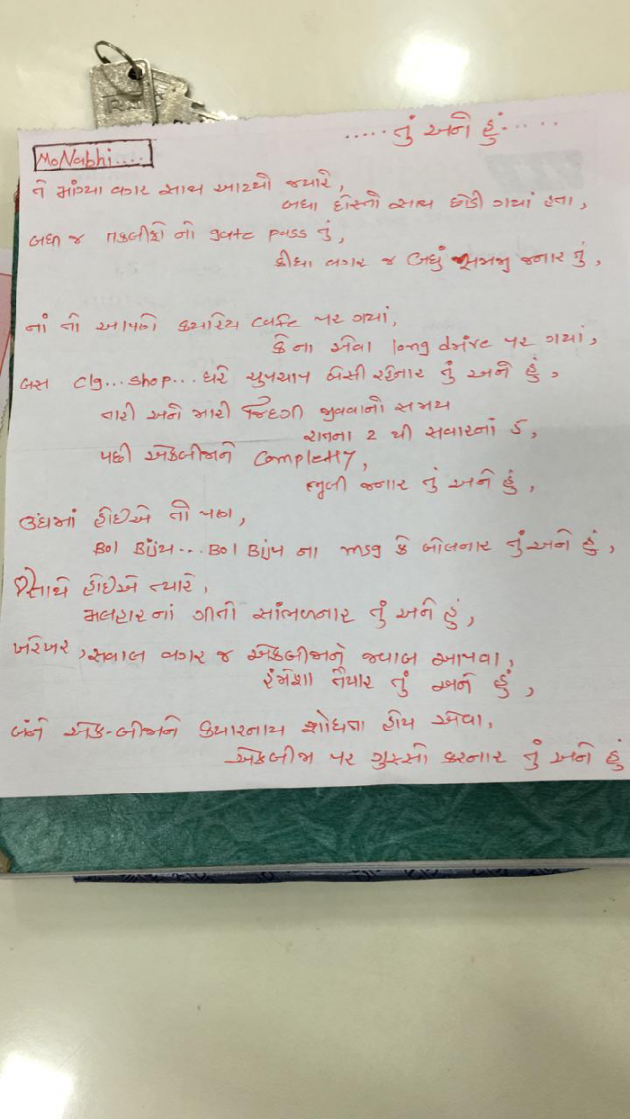 ..... તું અને હું.....
MoNabhi....
તે માંગ્યા વગર સાથ આપ્યો જ્યારે,
બધા દોસ્તો સાથ છોડી ગયાં હતા,
બધી જ તકલીફો નો gate pass તું,
કીધા વગર જ બધું સમજી જનાર તું,
નાં તો આપણે ક્યારેય cafe પર ગયાં,
કે ના એવા long drive પર ગયાં,
બસ clg...shop...ઘરે ચુપચાપ બેસી રહેનાર તું અને હું,
તારી અને મારી જિંદગી જીવવાનો સમય
રાતના 2 થી સવારનાં 5,
પછી એકબીજાને completly,
ભુલી જનાર તું અને હું,
ઉંઘમાં હોઈએ તો પણ,
Bol Bijy...Bol Bijy ના msg કે બોલનાર તું અને હું,
સાથે હોઈએ ત્યારે,
મલહાર નાં ગીતો સાંભળનાર તું અને હું,
ખરેખર, સવાલ વગર જ એકબીજાને જવાબ આપવા,
હંમેશા તૈયાર તું અને હું,
બંને એક-બીજાને ક્યારનાય શોધતા હોય એવા,
એકબીજા પર ગુસ્સો કરનાર તું અને હું